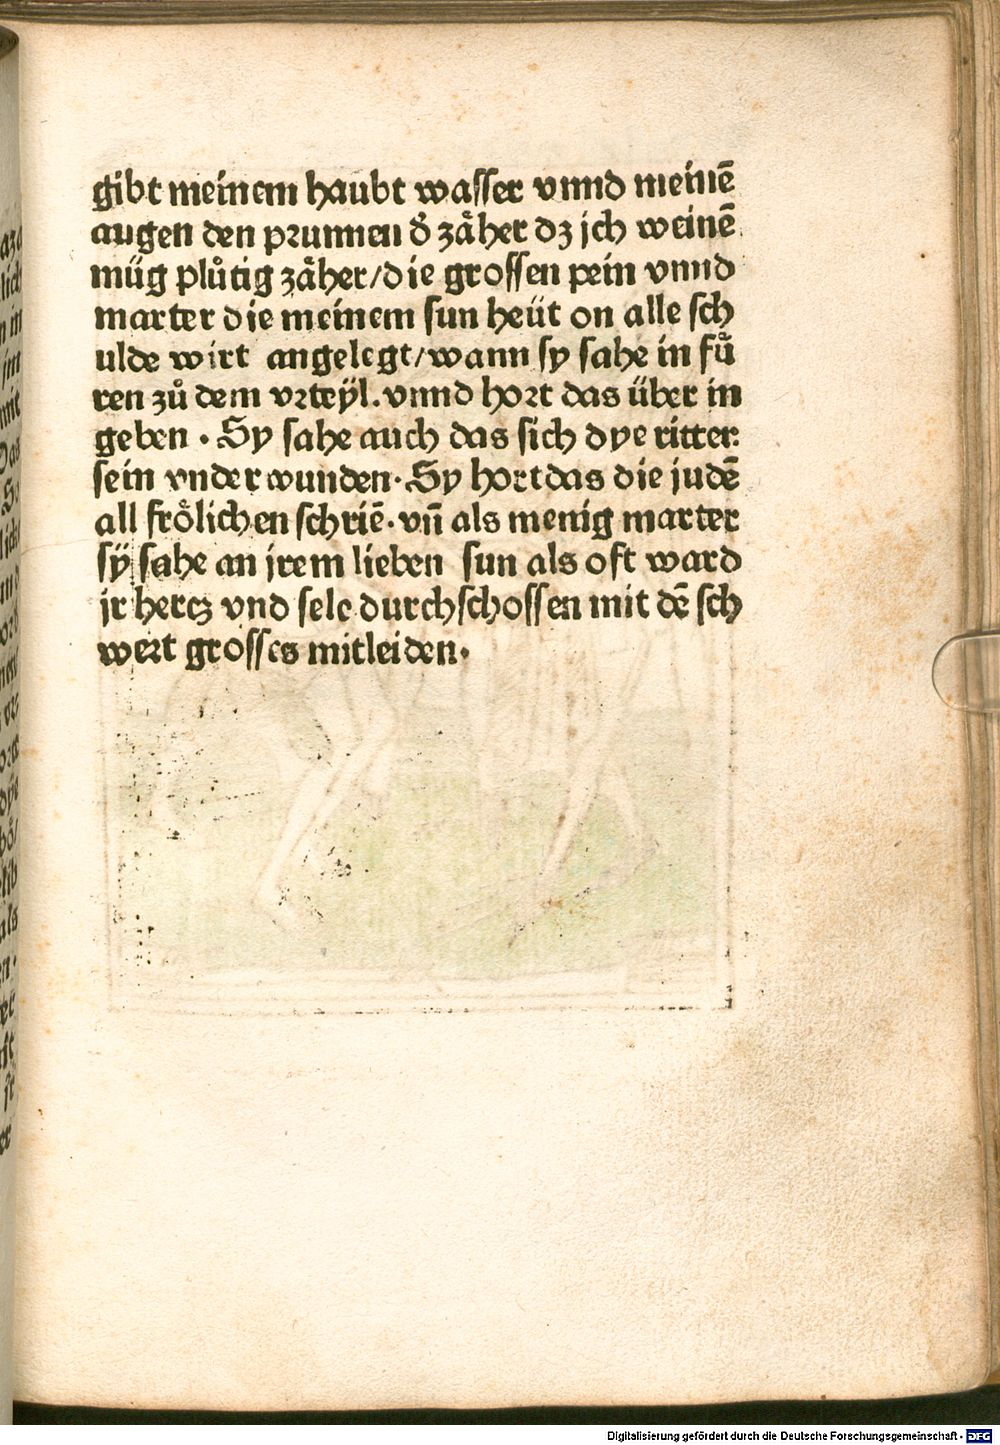 gibt meinem haubt wasser vnnd meinē
augen den prunnen d̕ zäher dz jch weinē
müg plůtig zäher/die grossen pein vnnd
marter die meinem sun heüt on alle sch
ulde wirt angelegt/wann sy sahe in fů
ren zů dem vrteÿl.vnnd hort das über in
geben . Sy sahe auch das sich dye ritter
sein vnder wunden. Sy hort das die judē
all frölichen schriē.vn̄ als menig marter
sÿ sahe an jrem lieben sun als oft ward
jr hercz vnd sele durchschossen mit dē sch
wert grosses mitleiden.
Digitalisierung gefördert durch die Deutsche Forschungsgemeinschaft - DFG